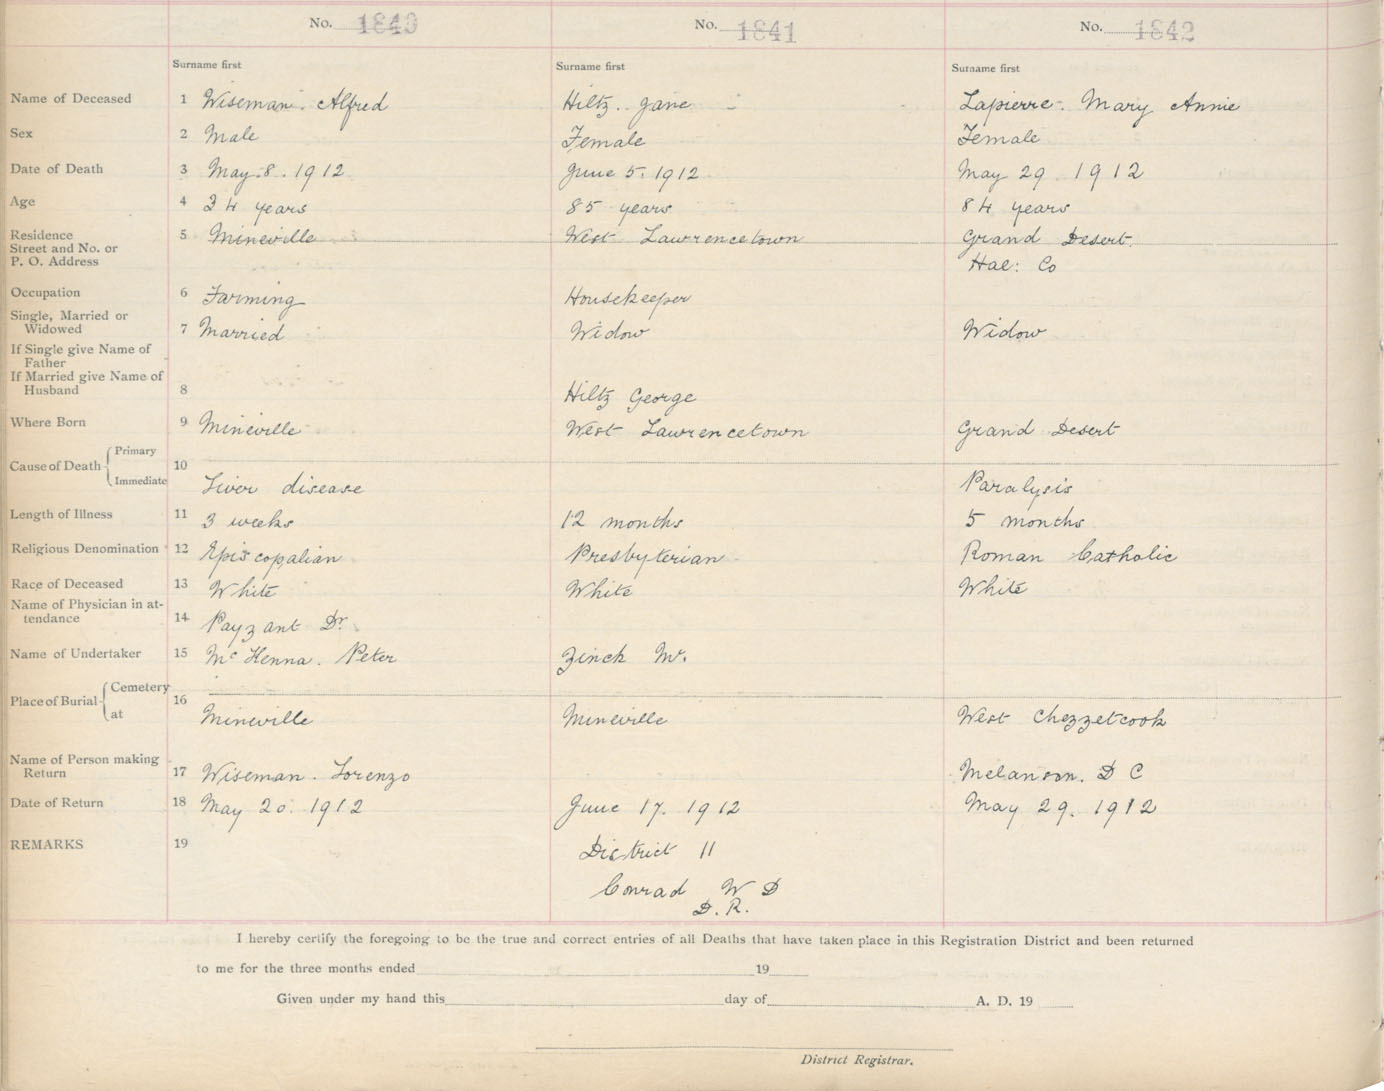 No. 1840 No. 1841 No. 1842
Surname first Surname first Surname first
Name of Deceased 1 Wiseman. Alfred Hiltz. Jane Lapierre. Mary Annie
Sex 2 Male Female Female
Date of Death 3 May. 8. 1912 June 5. 1912 May 29 1912
Age 4 34 years 85 years 84 years
Residence 5 Mineville West Lawrencetown Grand Desert.
Street and No. or
P. O. Address Hal: Co
Occupation 6 Farming Housekeeper
Single, Married or
Widowed 7 Married Widow Widow
If Single give Name of
Father
If Married give Name of
Husband 8 Hiltz George
Where Born 9 Mineville West Lawrencetown Grand Desert
Primary
Cause of Death 10
Immediate Liver disease Paralysis
Length of Illness 11 3 weeks 12 months 5 months
Religious Denomination 12 Episcopalian Presbyterian Roman Catholic
Race of Deceased 13 White White White
Name of Physician in at-
tendance 14 Payzant Dr.
Name of Undertaker 15 Mc Henna. Peter Zinck Mr.
Cemetery
Place of Burial 16
at Mineville Mineville West Chezzetcook
Name of Person making
Return 17 Wiseman. Lorenzo Melanson. D C
Date of Return 18 May 20. 1912 June 17. 1912 May 29. 1912
REMARKS 19 District 11
Conrad W D
D. R.
I hereby certify the foregoing to be the true and correct entries of all Deaths that have taken place in this Registration District and been returned
to me for the three months ended 19
Given under my hand this day of A. D. 19
District Registrar.